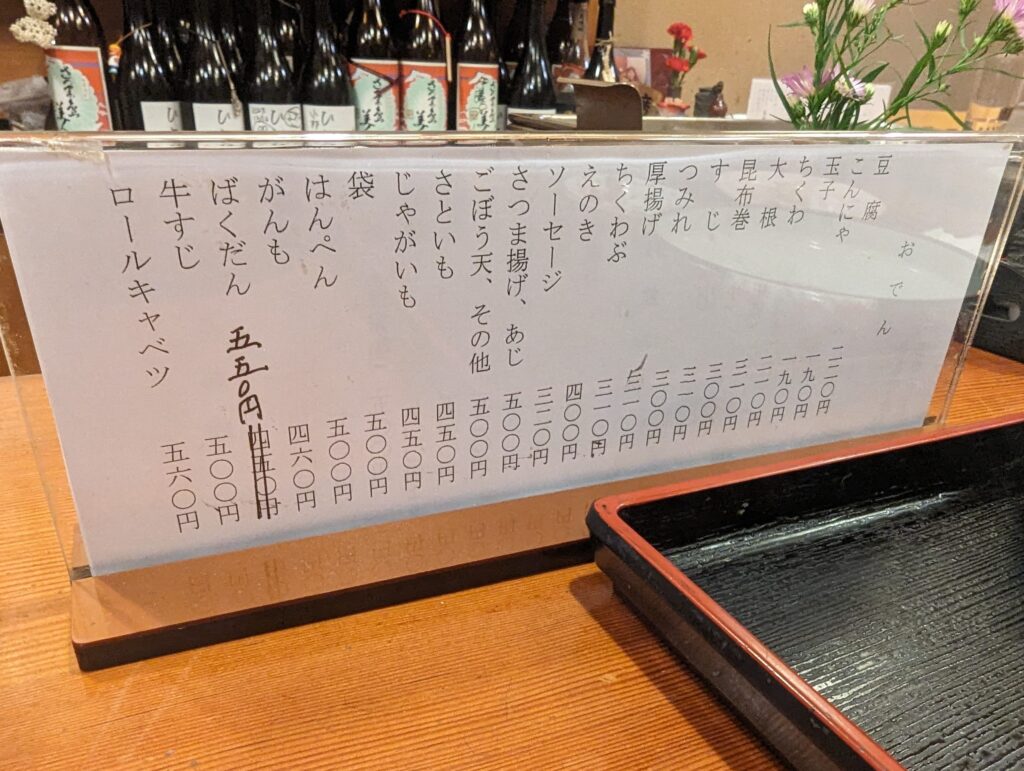 おでん
豆腐 二二〇円
こんにゃ 一九〇円
玉子 一九〇円
ちくわ 二一〇円
大根 三一〇円
昆布巻 三〇〇円
すじ 三一〇円
つみれ 三〇〇円
厚揚げ 三一〇円
ちくわぶ 三一〇円
えのき 四〇〇円
ソーセージ 三二〇円
さつま揚げ、あじ 五〇〇円
ごぼう天、その他 五〇〇円
さといも 四五〇円
じゃがいも 四五〇円
袋 五〇〇円
はんぺん 五〇〇円
がんも 四六〇円
ばくだん 五五〇円 四五〇円
牛すじ 五〇〇円
ロールキャベツ 五六〇円